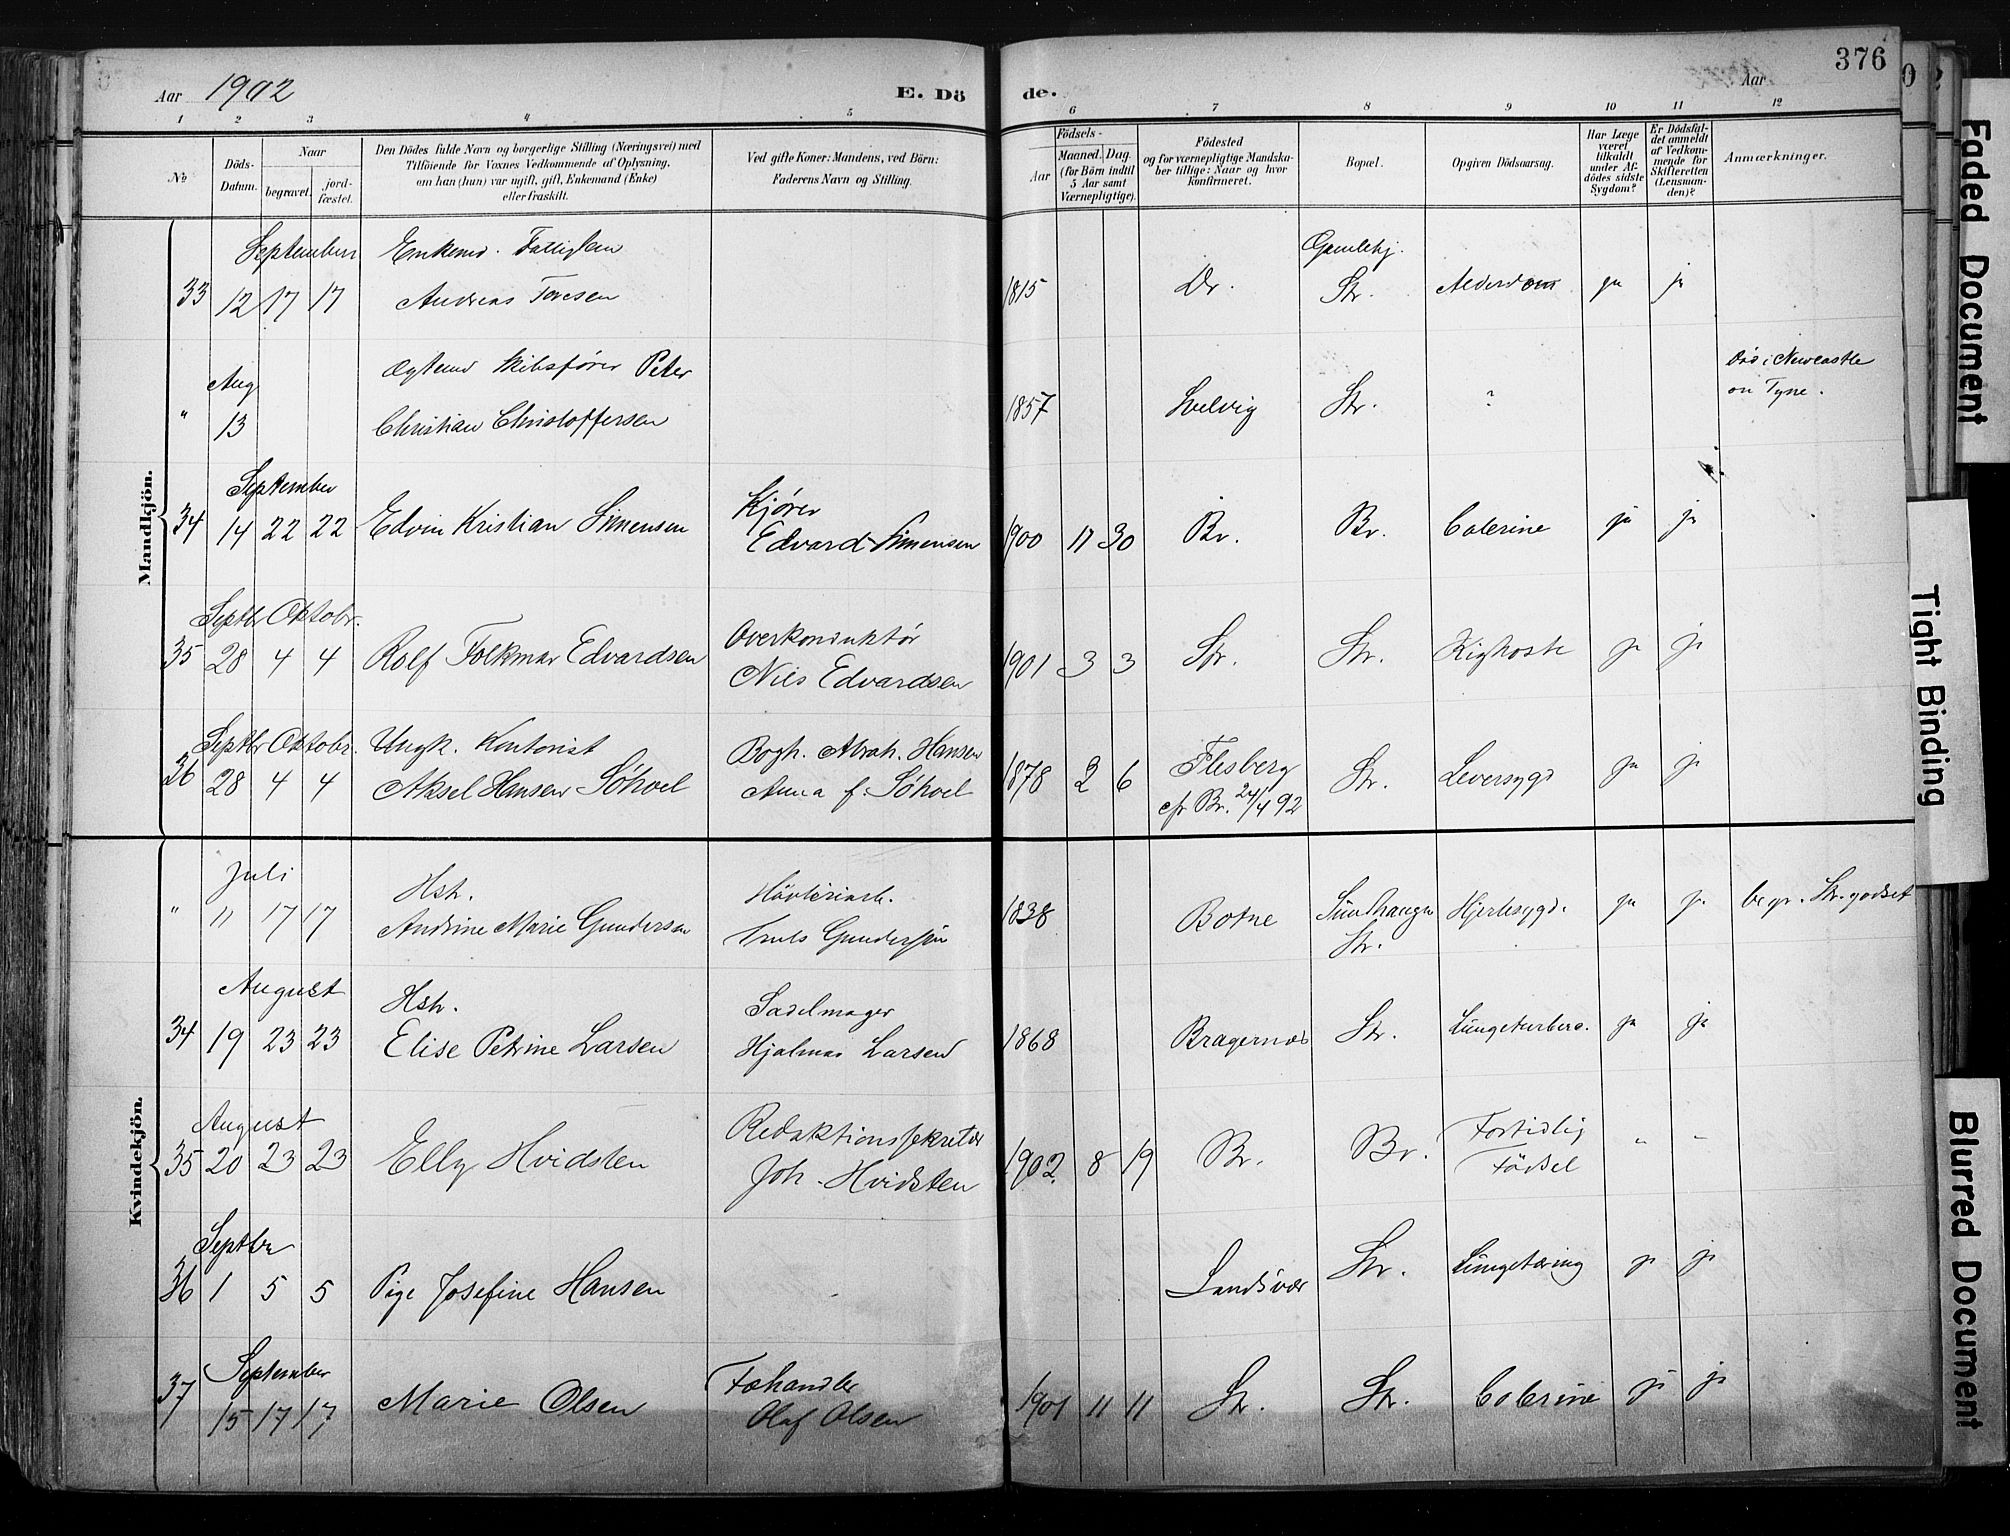 376
Aar 1902 E. Dö de. Aar
1 2 3 4 5 6 7 8 9 10 11 12
No
Döds-Datum.
Naar
begravet.
jord-fæstet.
Den Dödes fulde Navn og borgerlige Stilling (Næringsvei) med
Tilföiende for Voxnes Vedkommende af Oplysning,
om han (hun) var ugift, gift, Enkemand (Enke)
eller fraskilt.
Ved gifte Koner: Mandens, ved Börn:
Faderens Navn og Stilling.
Födsels-
Aar
Maaned. Dag.
(for Börn indtil
5 Aar samt
Værnepligtige).
Födested
og for værnepligtige Mandska-
ber tillige: Naar og hvor
konfirmeret.
Bopæl.
Opgiven Dödsaarsag.
Har Læge
været
tilkaldt
under Af-
dödes sidste
Sygdom?
Er Dödsfal-
det anmeldt
af Vedkom-
mende for
Skifteretten
(Lensman-
den)?
Anmærkninger.
Mandkjön.
September Enkemd. Fattiglem Gamlehj.
33 12 17 17 Andreas Toresen 1815 Dr. Str. Alderdom ja ja
Aug Ægtemd Skibsfører Peter Död i Newcastle
" 13 Christian Christoffersen 1857 Svelvig Str. ? on Tyne.
September Kjører
34 14 22 22 Edvin Kristian Simensen Edvard Simensen 1900 11 30 Br. Br. Colerine ja ja
Septbr Oktobr. Overkonduktør
35 28 4 4 Rolf Folkmar Edvardsen Niels Edvardsen 1901 3 3 Str. Str. Kighoste ja ja
Septbr Oktobr. Ungk. Kontorist Bogh. Abrah. Hansen Flesberg
36 28 4 4 Aksel Hansen Söhoel Anna f. Söhoel 1878 2 6 cfr Br. 24/4 92 Str. Leversygd ja ja
Kvindekjön.
Juli Hst.
" 11 17 17 Andrine Marie Gundersen Truls Gundersen 1838 Botne Sundhaugen Str. Hjertesygd. ja ja begr. Str. godset
August Hst. Sadelmager
34 19 23 23 Elise Petrine Larsen Hjalmar Larsen 1868 Bragernæs Str. Lungeturberc. ja ja
August Redaktionssekretær Fortidlig
35 20 23 23 Elly Hvidsten Joh. Hvidsten 1902 8 19 Br. Br. Födsel " "
Septbr
36 1 5 5 Pige Josefine Hansen Sandsvær Str. Lungetæring ja ja
September Fæhandler
37 15 17 17 Marie Olsen Olaf Olsen 1901 11 11 Str. Str. Colerine ja ja
Faded Document
Tight Binding
Blurred Document